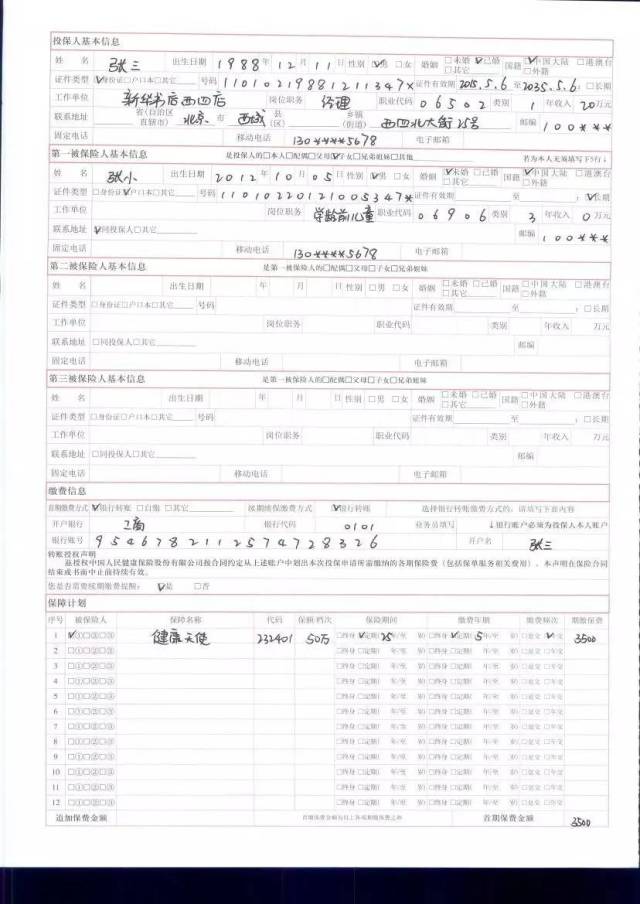 投保人基本信息
姓 名 张三 出生日期 1988年12月11日 性别 ☑男 □女 婚姻 □未婚 ☑已婚 □其它 国籍 ☑中国大陆 □港澳台 □外籍
证件类型 ☑身份证□户口本□其它 号码 11010219881211347* 证件有效期 2015.5.6 至 2035.5.6; □长期
工作单位 新华书店西四店 岗位职务 经理 职业代码 06502 类别 1 年收入 20万元
联系地址 省(自治区直辖市) 北京 市 西城 县(区) 乡镇(街道) 西四北大街25号 邮编 100***
固定电话 移动电话 130****5678 电子邮箱
第一被保险人基本信息 是投保人的□本人□配偶□父母☑子女□兄弟姐妹□其他 若为本人无须填写下5行↓
姓 名 张小 出生日期 2012年10月05日 性别 ☑男 □女 婚姻 ☑未婚 □已婚 □其它 国籍 ☑中国大陆 □港澳台 □外籍
证件类型 □身份证☑户口本□其它 号码 11010220121005347* 证件有效期 至 ; ☑长期
工作单位 岗位职务 学龄前儿童 职业代码 06906 类别 3 年收入 0 万元
联系地址 ☑同投保人□其它 邮编 100***
固定电话 移动电话 130****5678 电子邮箱
第二被保险人基本信息 是第一被保险人的□配偶□父母□子女□兄弟姐妹
姓 名 出生日期 年 月 日 性别 □男 □女 婚姻 □未婚 □已婚 □其它 国籍 □中国大陆 □港澳台 □外籍
证件类型 □身份证□户口本□其它 号码 证件有效期 至 ; □长期
工作单位 岗位职务 职业代码 类别 年收入 万元
联系地址 □同投保人□其它 邮编
固定电话 移动电话 电子邮箱
第三被保险人基本信息 是第一被保险人的□配偶□父母□子女□兄弟姐妹
姓 名 出生日期 年 月 日 性别 □男 □女 婚姻 □未婚 □已婚 □其它 国籍 □中国大陆 □港澳台 □外籍
证件类型 □身份证□户口本□其它 号码 证件有效期 至 ; □长期
工作单位 岗位职务 职业代码 类别 年收入 万元
联系地址 □同投保人□其它 邮编
固定电话 移动电话 电子邮箱
缴费信息
首期缴费方式 ☑银行转账 □自缴 □其它 续期续保缴费方式 ☑银行转账 选择银行转账缴费方式的,请填写下面内容
开户银行 工商 银行代码 0101 业务员填写 ↓银行账户必须为投保人本人账户
银行账号 9546782112574728326 开户名 张三
转账授权声明
兹授权中国人民健康保险股份有限公司按合同约定从上述账户中划出本次投保申请所需缴纳的各期保险费(包括保单服务相关费用)。本声明在保险合同
结束或书面中止前持续有效。
您是否需要续期缴费提醒: ☑是 □否
保障计划
序号 被保险人 保障名称 代码 保额/档次 保险期间 缴费年期 缴费频次 期缴保费
1 ☑①□②□③ 健康天使 232401 50万 □终身☑定期( 25 年/至 岁) □终身☑定期( 5 年/至 岁) □趸交 ☑年交 3500
2 □①□②□③ □终身□定期( 年/至 岁) □终身□定期( 年/至 岁) □趸交 □年交
3 □①□②□③ □终身□定期( 年/至 岁) □终身□定期( 年/至 岁) □趸交 □年交
4 □①□②□③ □终身□定期( 年/至 岁) □终身□定期( 年/至 岁) □趸交 □年交
5 □①□②□③ □终身□定期( 年/至 岁) □终身□定期( 年/至 岁) □趸交 □年交
6 □①□②□③ □终身□定期( 年/至 岁) □终身□定期( 年/至 岁) □趸交 □年交
7 □①□②□③ □终身□定期( 年/至 岁) □终身□定期( 年/至 岁) □趸交 □年交
8 □①□②□③ □终身□定期( 年/至 岁) □终身□定期( 年/至 岁) □趸交 □年交
9 □①□②□③ □终身□定期( 年/至 岁) □终身□定期( 年/至 岁) □趸交 □年交
10 □①□②□③ □终身□定期( 年/至 岁) □终身□定期( 年/至 岁) □趸交 □年交
11 □①□②□③ □终身□定期( 年/至 岁) □终身□定期( 年/至 岁) □趸交 □年交
12 □①□②□③ □终身□定期( 年/至 岁) □终身□定期( 年/至 岁) □趸交 □年交
追加保费金额 首期保费金额 3500